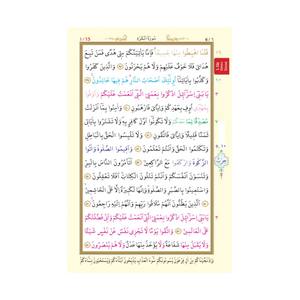 سورة البقرة
قُلْنَا اهْبِطُوا مِنْهَا جَمِيعًا فَإِمَّا يَأْتِيَنَّكُم مِّنِّي هُدًى فَمَن تَبِعَ
هُدَايَ فَلَا خَوْفٌ عَلَيْهِمْ وَلَا هُمْ يَحْزَنُونَ وَالَّذِينَ كَفَرُوا
وَكَذَّبُوا بِآيَاتِنَا أُولَٰئِكَ أَصْحَابُ النَّارِ هُمْ فِيهَا خَالِدُونَ
يَا بَنِي إِسْرَائِيلَ اذْكُرُوا نِعْمَتِيَ الَّتِي أَنْعَمْتُ عَلَيْكُمْ وَأَوْفُوا
بِعَهْدِي أُوفِ بِعَهْدِكُمْ وَإِيَّايَ فَارْهَبُونِ وَآمِنُوا بِمَا أَنزَلْتُ
مُصَدِّقًا لِّمَا مَعَكُمْ وَلَا تَكُونُوا أَوَّلَ كَافِرٍ بِهِ وَلَا تَشْتَرُوا بِآيَاتِي
ثَمَنًا قَلِيلًا وَإِيَّايَ فَاتَّقُونِ وَلَا تَلْبِسُوا الْحَقَّ بِالْبَاطِلِ
وَتَكْتُمُوا الْحَقَّ وَأَنتُمْ تَعْلَمُونَ وَأَقِيمُوا الصَّلَاةَ وَآتُوا
الزَّكَاةَ وَارْكَعُوا مَعَ الرَّاكِعِينَ أَتَأْمُرُونَ النَّاسَ بِالْبِرِّ
وَتَنسَوْنَ أَنفُسَكُمْ وَأَنتُمْ تَتْلُونَ الْكِتَابَ أَفَلَا تَعْقِلُونَ
وَاسْتَعِينُوا بِالصَّبْرِ وَالصَّلَاةِ وَإِنَّهَا لَكَبِيرَةٌ إِلَّا عَلَى الْخَاشِعِينَ
الَّذِينَ يَظُنُّونَ أَنَّهُم مُّلَاقُو رَبِّهِمْ وَأَنَّهُمْ إِلَيْهِ رَاجِعُونَ
يَا بَنِي إِسْرَائِيلَ اذْكُرُوا نِعْمَتِيَ الَّتِي أَنْعَمْتُ عَلَيْكُمْ وَأَنِّي فَضَّلْتُكُمْ
عَلَى الْعَالَمِينَ وَاتَّقُوا يَوْمًا لَّا تَجْزِي نَفْسٌ عَن نَّفْسٍ شَيْئًا
وَلَا يُقْبَلُ مِنْهَا شَفَاعَةٌ وَلَا يُؤْخَذُ مِنْهَا عَدْلٌ وَلَا هُمْ يُنصَرُونَ